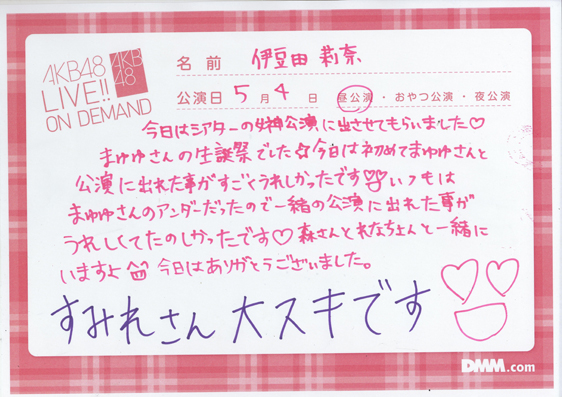 AKB48
LIVE!!
ON DEMAND
AKB
48
名前 伊豆田 莉奈
公演日 5月4日 昼公演・おやつ公演・夜公演
今日はシアターの女神公演に出させてもらいました♡
まゆゆさんの生誕祭でした☆今日は初めてまゆゆさんと
公演に出れた事がすごくうれしかったです いつもは
まゆゆさんのアンダーだったので一緒の公演に出れた事が
うれしくてたのしかったです♡森さんとれなちょんと一緒に
いますよ 今日はありがとうございました。
すみれさん大スキです
DMM.com